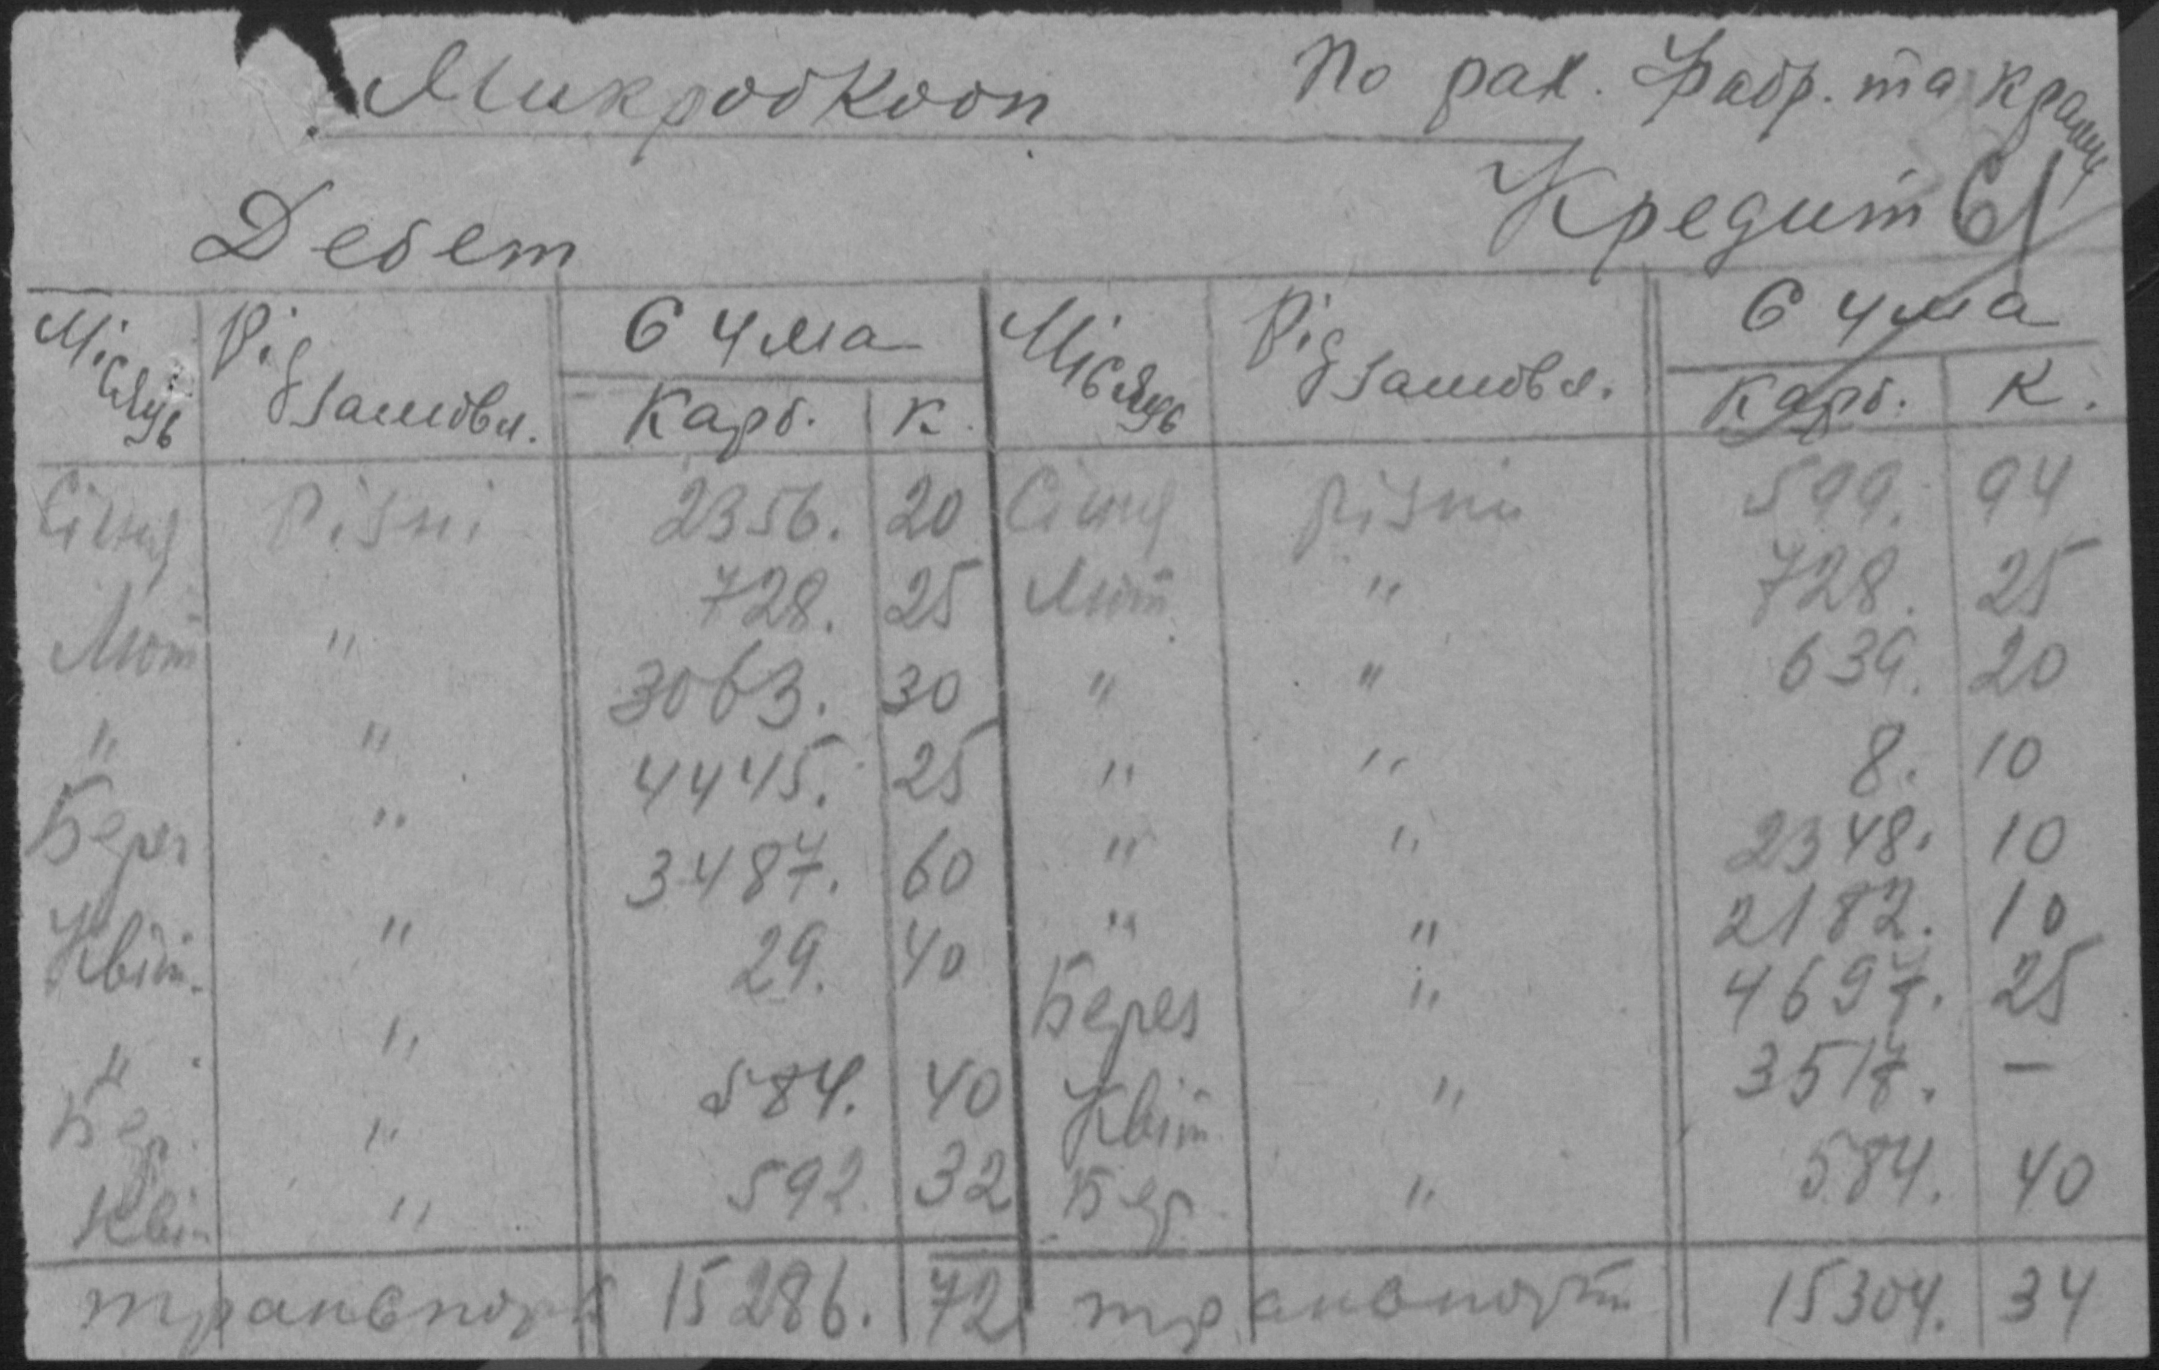 Микробкооп По рах. Фабр. та крамн
Дебет Кредит 61
Місяць Рід замовл. Сума Місяць Рід замовл. Сума
Карб. К. Карб. К.
Січня Різні 2356. 20 Січня Різні 599. 94
Лют " 728. 25 Лют " 728. 25
" " 3063. 30 " " 639. 20
Берез " 4445. 25 " " 8. 10
Квіт. " 3487. 60 " " 2348. 10
" " 29. 40 " " 2182. 10
Берез " 4697. 25
Бер. " 584. 40 Квіт " 3517. —
Квіт " 592. 32 Бер. " 584. 40
транспорт 15286. 72 транспорт 15304. 34